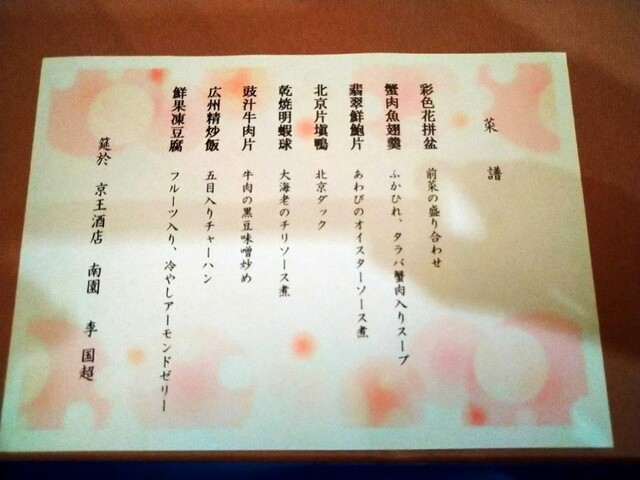 菜譜
彩色花拼盆 前菜の盛り合わせ
蟹肉魚翅羹 ふかひれ、タラバ蟹肉入りスープ
翡翠鮮鮑片 あわびのオイスターソース煮
北京片塡鴨 北京ダック
乾焼明蝦球 大海老のチリソース煮
豉汁牛肉片 牛肉の黒豆味噌炒め
広州精炒飯 五目入りチャーハン
鮮果凍豆腐 フルーツ入り、冷やしアーモンドゼリー
筵於 京王酒店 南園 李 国超